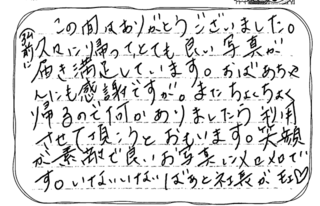 この間はありがとうございました。
久々に帰って、とても良い写真が
届き満足しています。おばあちゃ
んにも感謝ですが。またちょくちょく
帰るので何かありましたら利用
させて頂こうとおもいます。笑顔
が素敵で良いお写真にメロメロで
す。いないいないばあと社長が